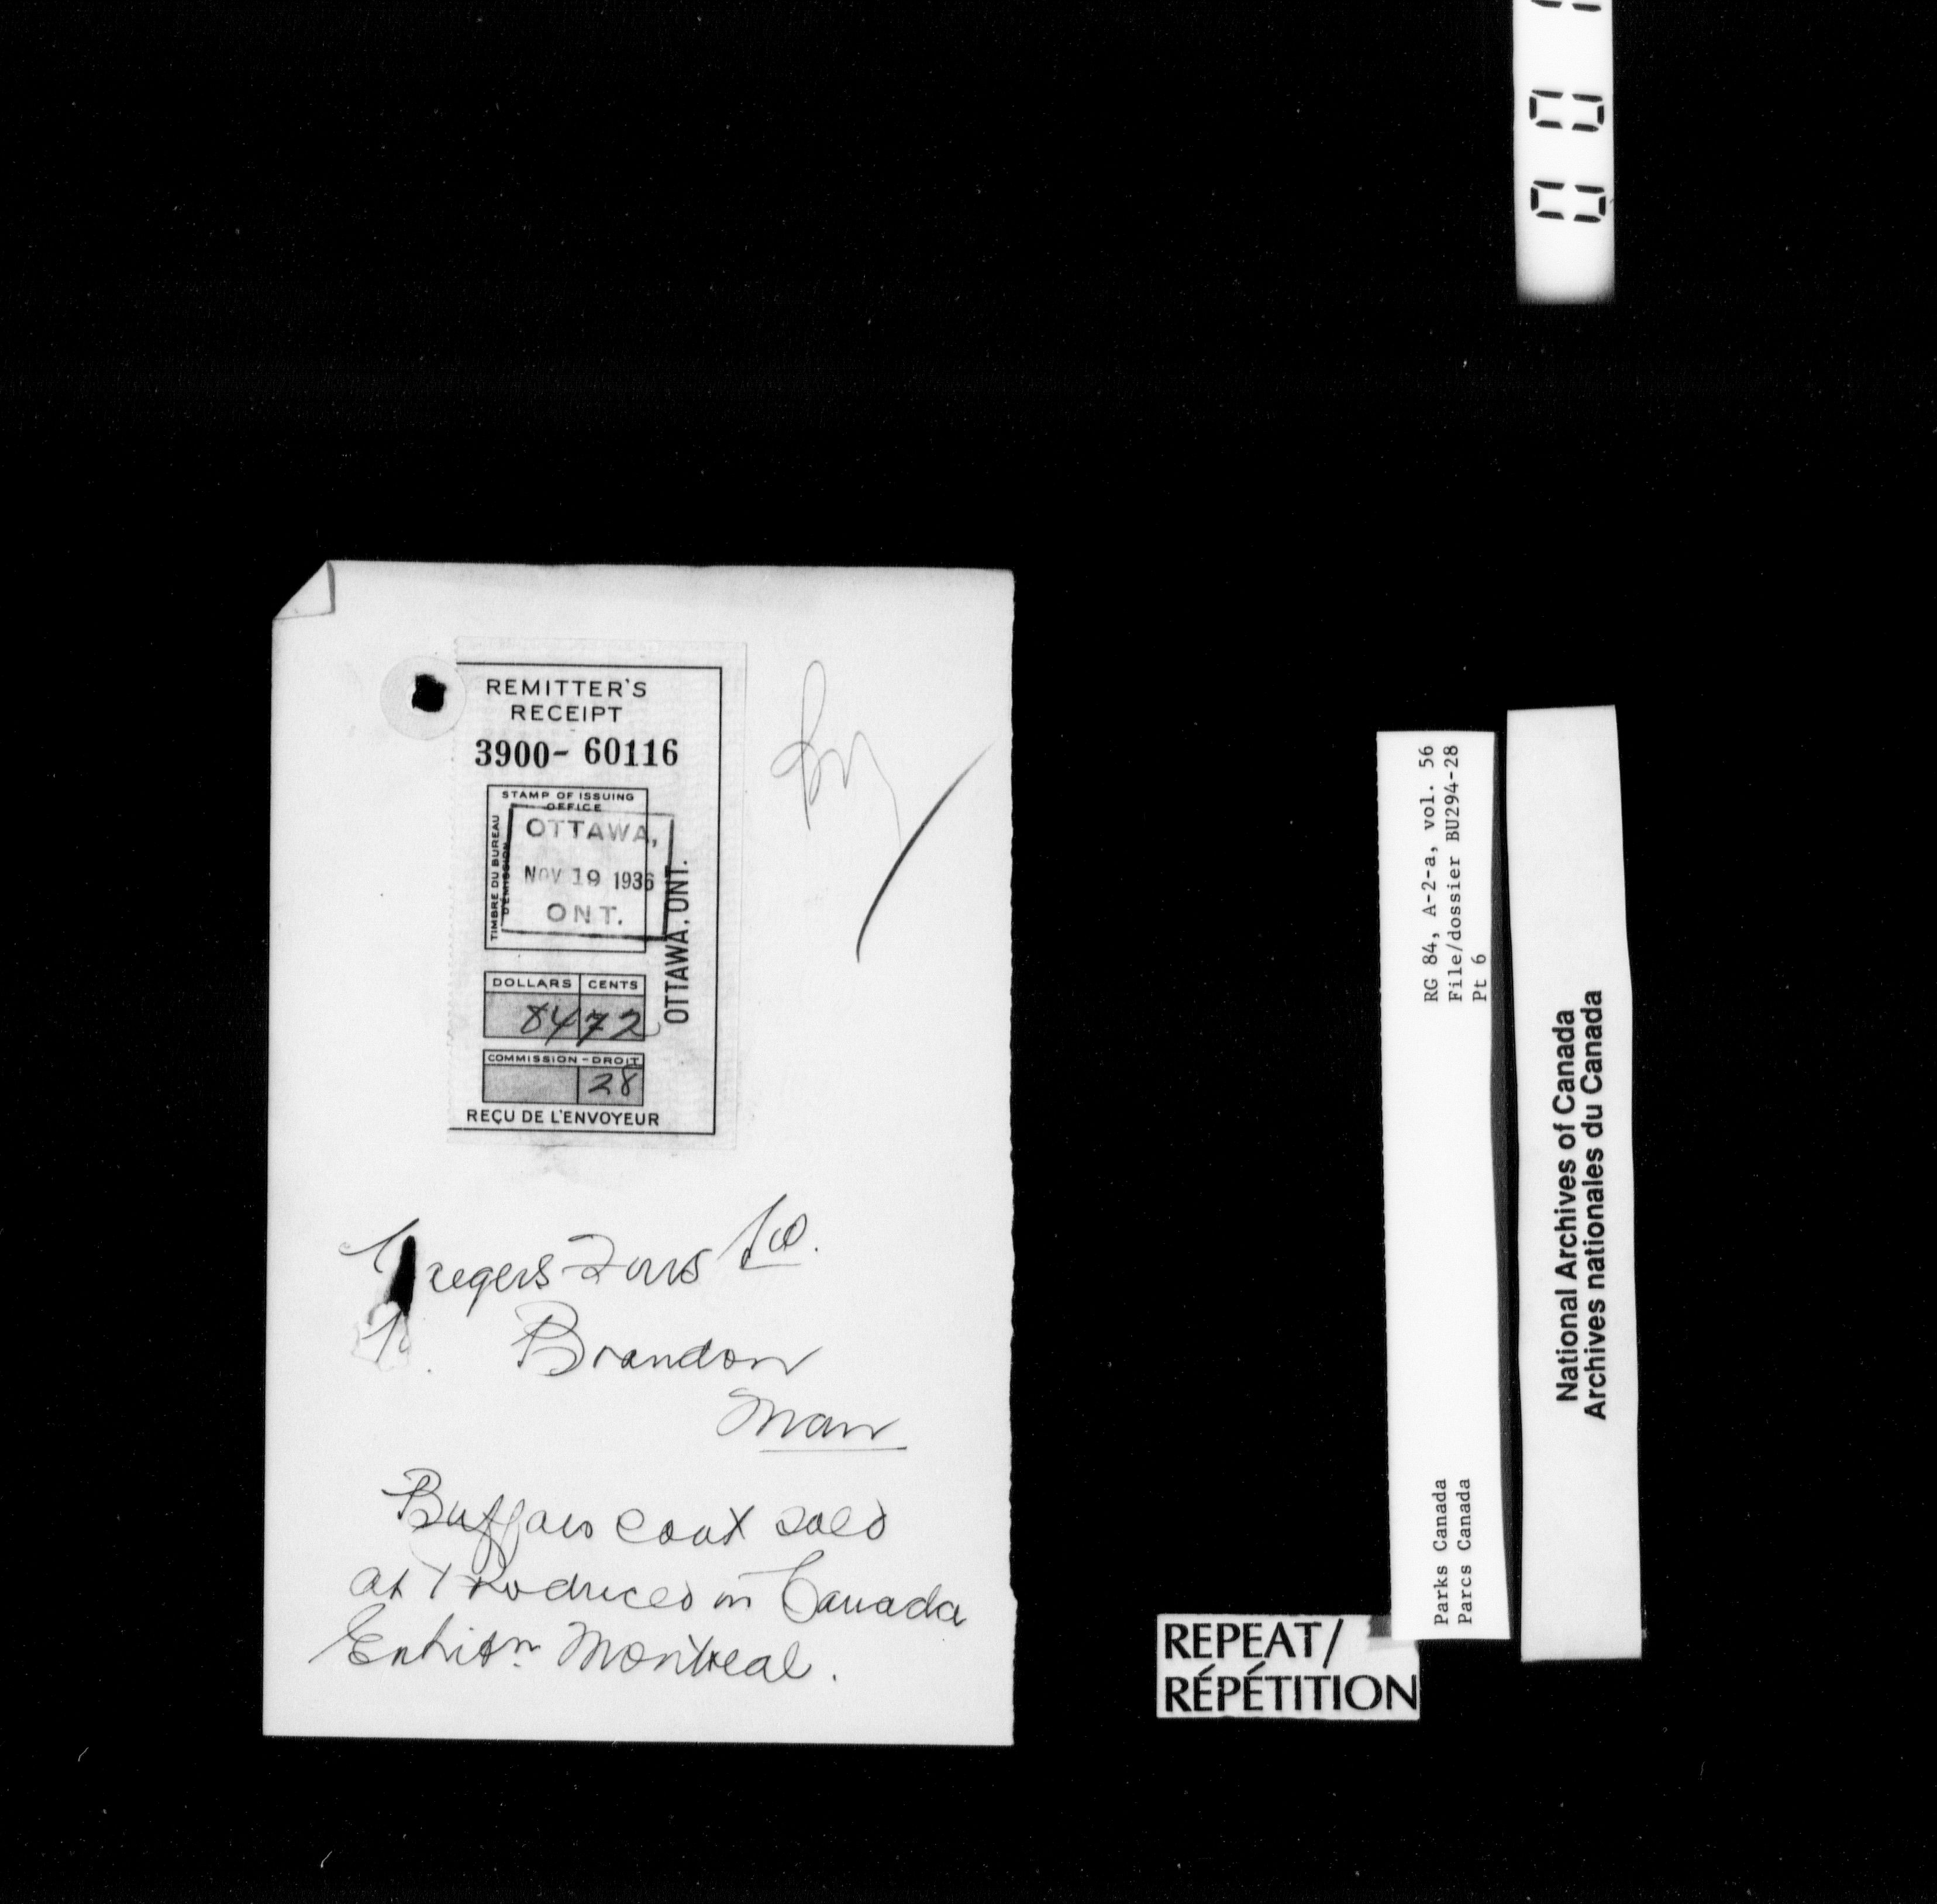 REMITTER'S
RECEIPT
3900- 60116
STAMP OF ISSUING
OFFICE
TIMBRE DU BUREAU
D'ÉMISSION
OTTAWA,
NOV 19 1936
ONT.
OTTAWA, ONT.
DOLLARS CENTS
84 72
COMMISSION - DROIT
28
REÇU DE L'ENVOYEUR
Furs Ltd.
Brandon
Man
Buffalo coat sold
at Produced in Canada
Exhibtn Montreal.
RG 84, A-2-a, vol. 56
File/dossier BU294-28
Pt 6
Parks Canada
Parcs Canada
National Archives of Canada
Archives nationales du Canada
REPEAT/
RÉPÉTITION